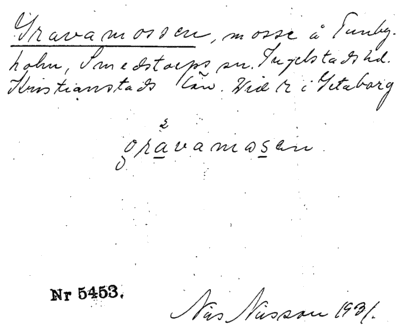 Gravamossen, mosse å Tunby-
holm, Smedstorps sn. Ingelstads hd.
Kristianstads län. Vid r i Getaborg
2
gravamosen
Nr 5453.
Nils Nilsson 1931.